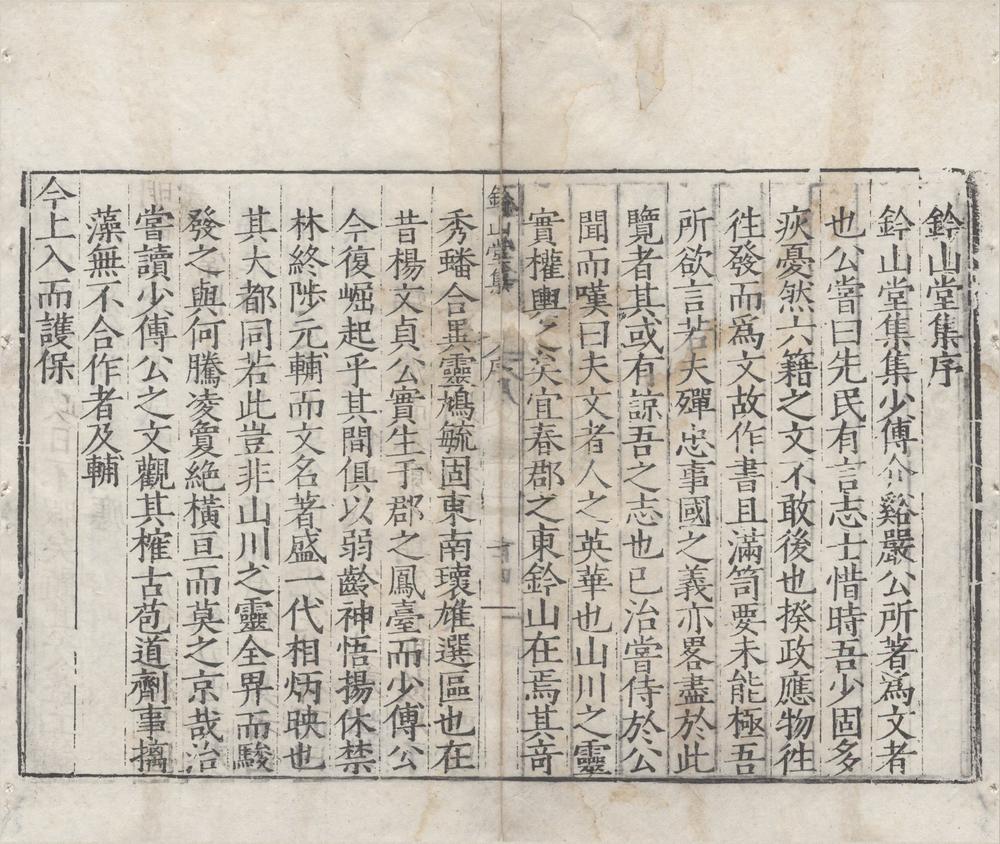 鈐山堂集序
鈐山堂集集少傅介谿嚴公所著爲文者
也公嘗曰先民有言志士惜時吾少固多
疾憂然六籍之文不敢後也揆政應物徃
徃發而爲文故作書且滿笥要未能極吾
所欲言若夫殫忠事國之義亦畧盡於此
覽者其或有諒吾之志也已治嘗侍於公
聞而嘆曰夫文者人之英華也山川之靈
實權輿之矣宜春郡之東鈐山在焉其竒
鈐山堂集
序
秀蟠合異靈鳩毓固東南瓌雄選區也在
昔楊文貞公實生于郡之鳳臺而少傅公
今復崛起乎其間俱以弱齡神悟揚休禁
林終陟元輔而文名著盛一代相炳映也
其大都同若此豈非山川之靈全畀而駿
發之與何騰凌敻絶橫亘而莫之京哉治
嘗讀少傅公之文觀其榷古苞道劑事摛
藻無不合作者及輔
今上入而護保